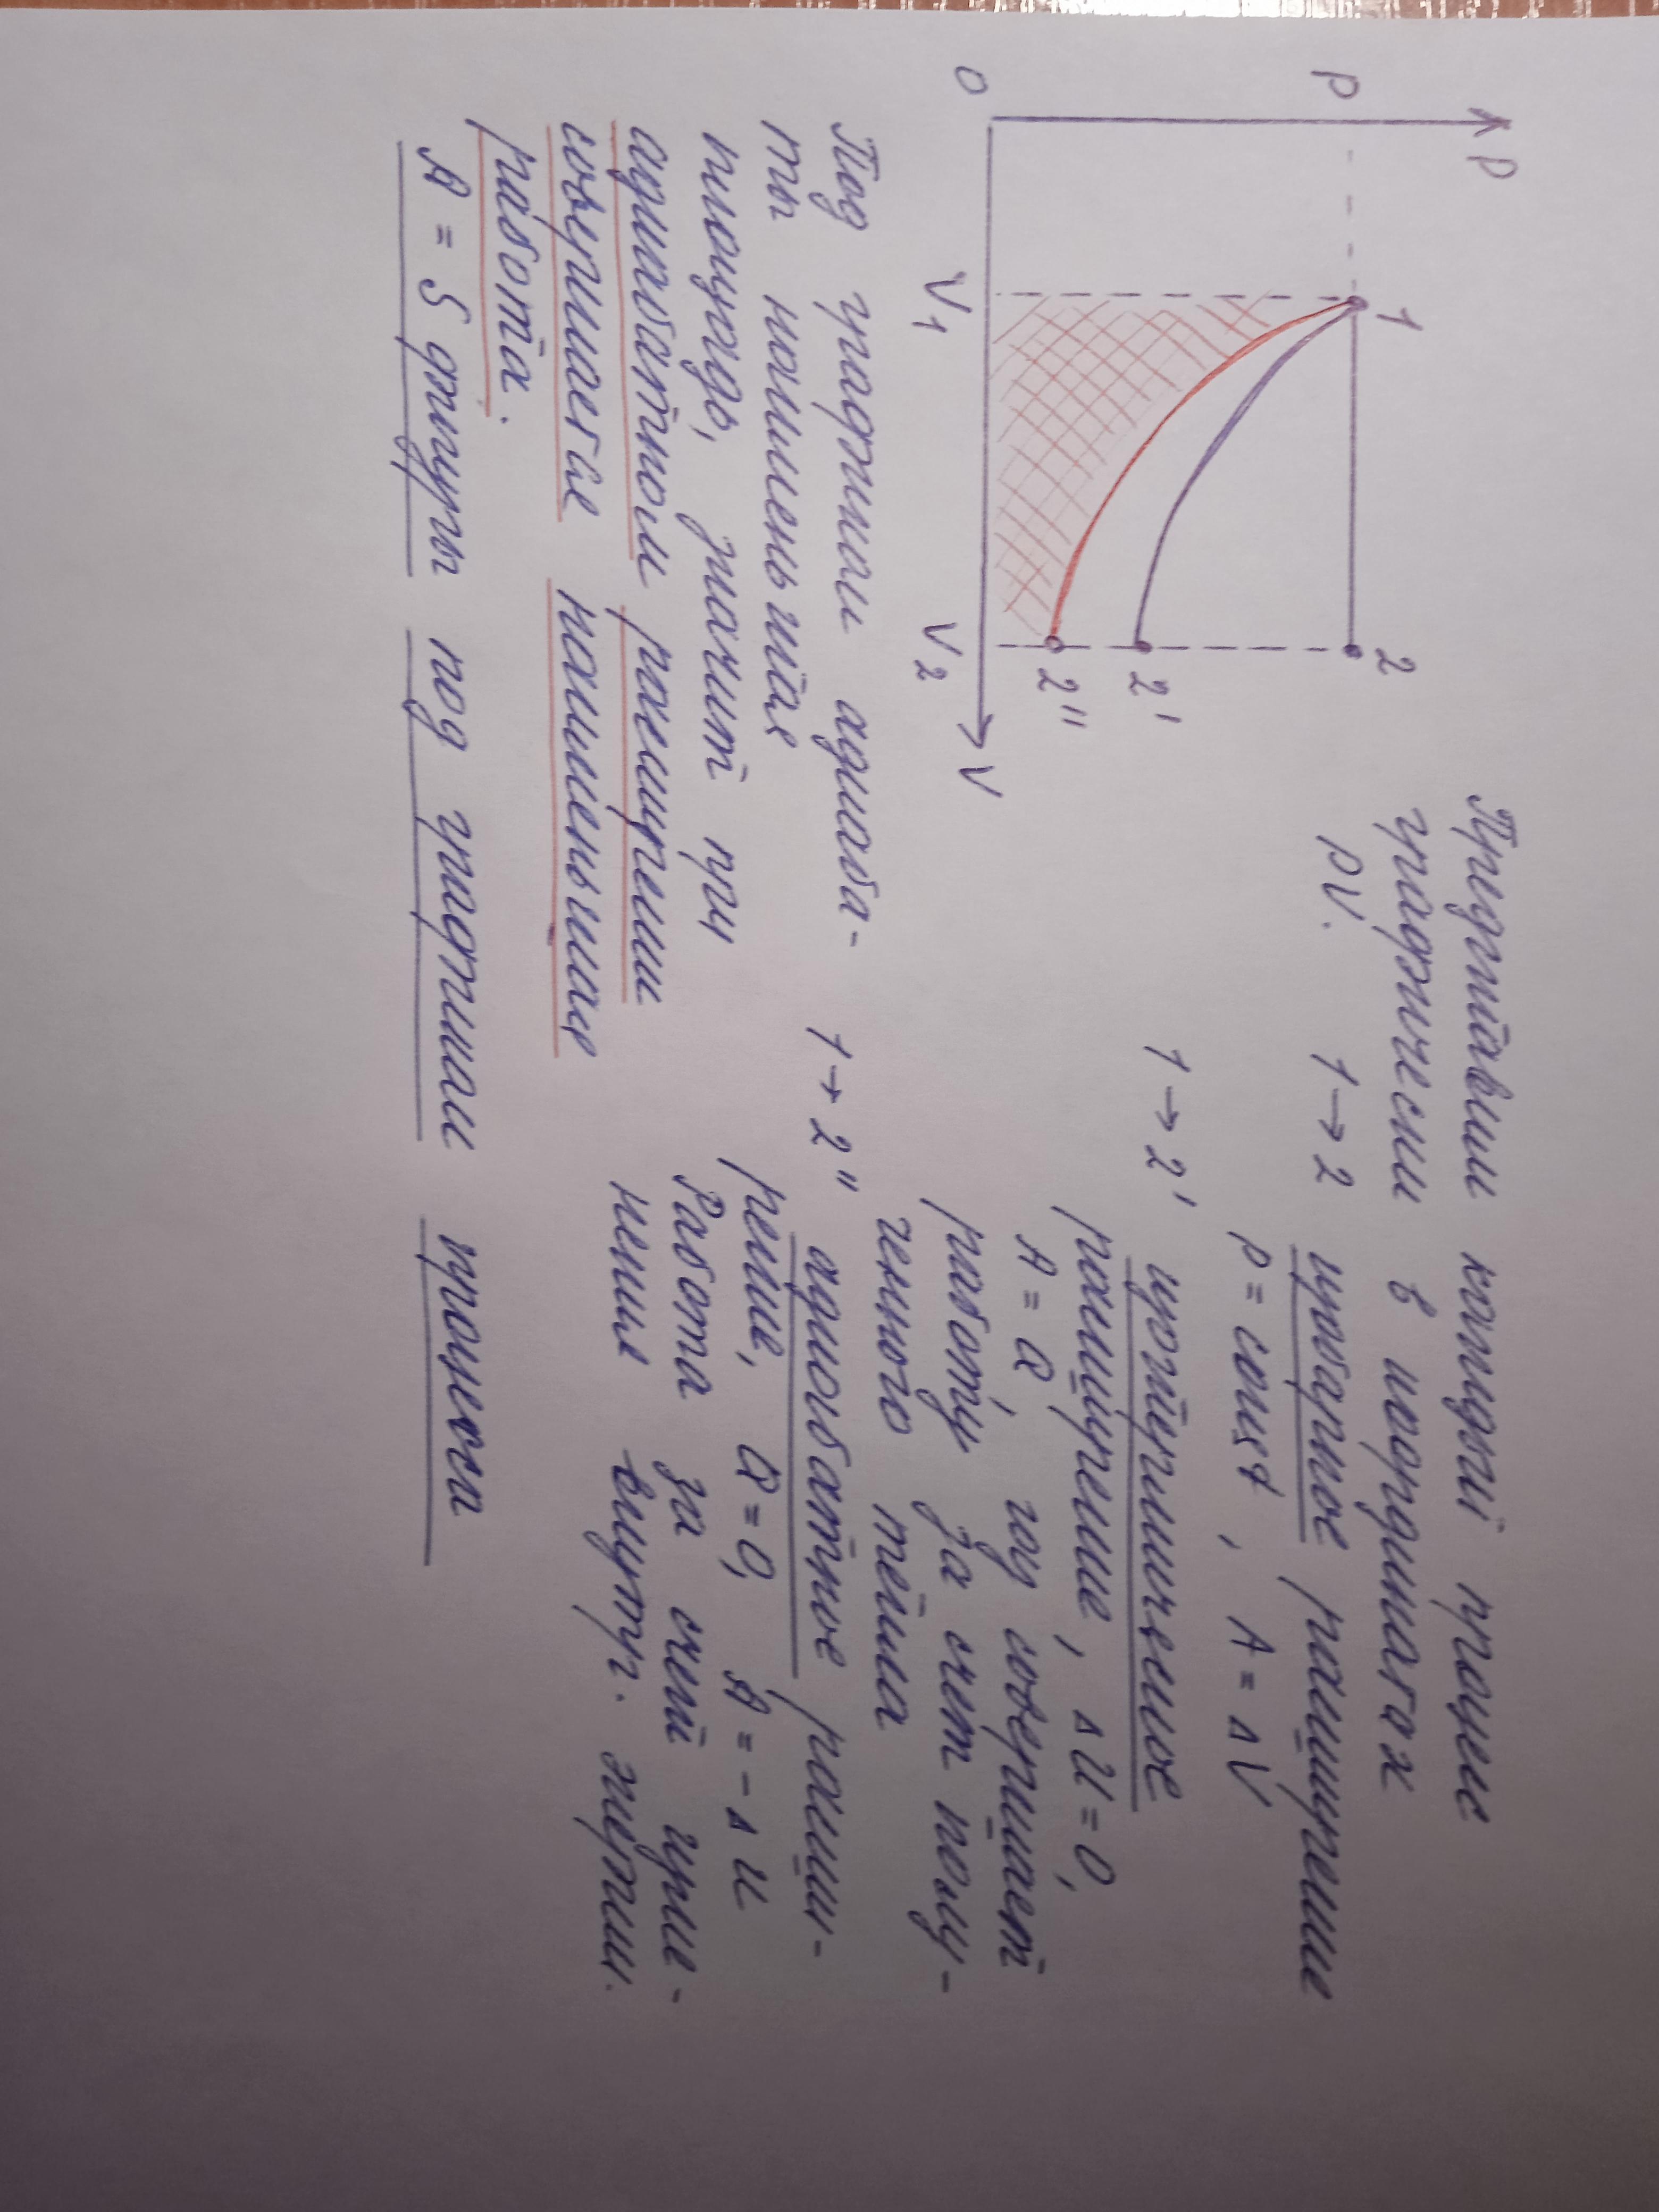 P
P
1
2
2'
2"
0
V1
V2
V
Представим каждый процесс
графически в координатах
pV.
1 → 2 изобарное расширение
p = const, A = ΔV
1 → 2' изотермическое
расширение, ΔU = 0,
A = Q, газ совершает
работу за счет полу-
ченного тепла
1 → 2" адиабатное расши-
рение, Q = 0, A = - ΔU
Работа за счет изме-
нения внутр. энергии.
Под графиком адиаба-
ты наименьшая
площадь, значит при
адиабатном расширении
совершается наименьшая
работа.
A = S фигуры под графиком процесса